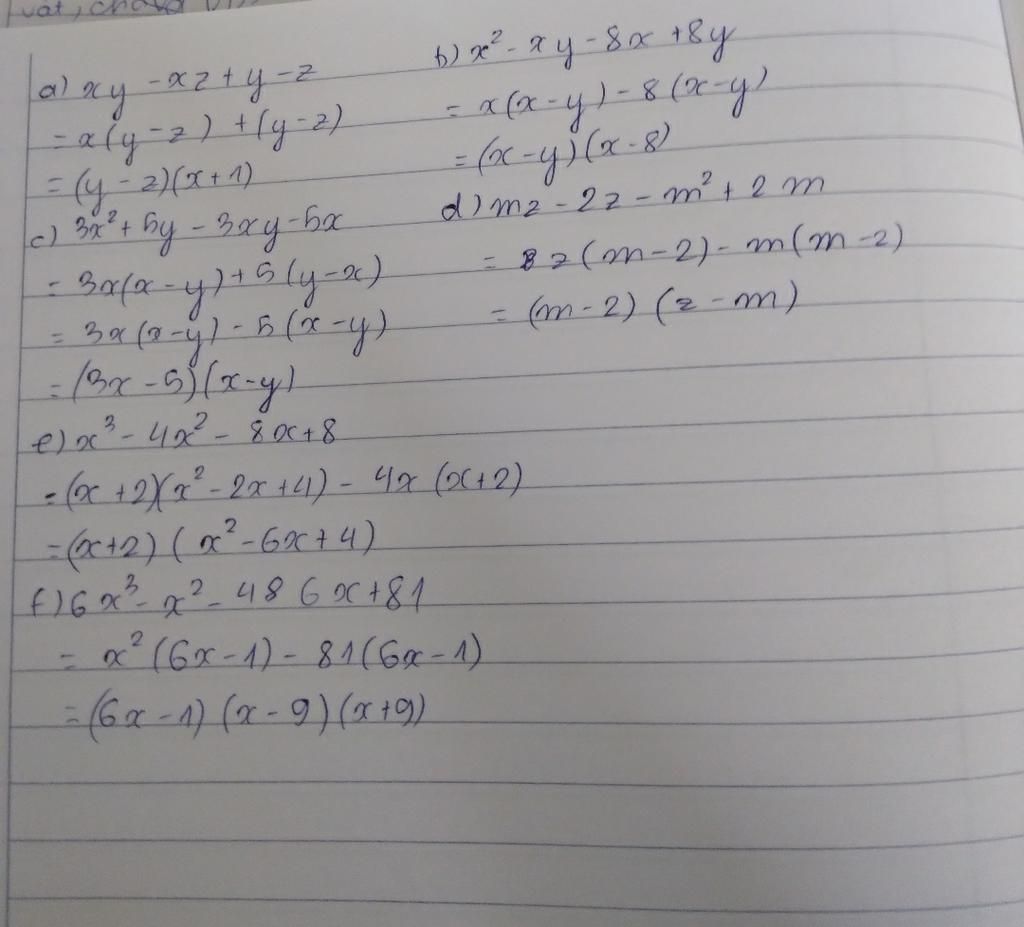 vật, ch
a) xy - xz + y - z
= x(y - z) + (y - z)
= (y - z)(x + 1)
b) x² - xy - 8x + 8y
= x(x - y) - 8(x - y)
= (x - y)(x - 8)
c) 3x² + 5y - 3xy - 5x
= 3x(x - y) + 5(y - x)
= 3x(x - y) - 5(x - y)
= (3x - 5)(x - y)
d) mz - 2z - m² + 2m
= z(m - 2) - m(m - 2)
= (m - 2)(z - m)
e) x³ - 4x² - 8x + 8
= (x + 2)(x² - 2x + 4) - 4x(x + 2)
= (x + 2)(x² - 6x + 4)
f) 6x³ - x² - 486x + 81
= x²(6x - 1) - 81(6x - 1)
= (6x - 1)(x - 9)(x + 9)